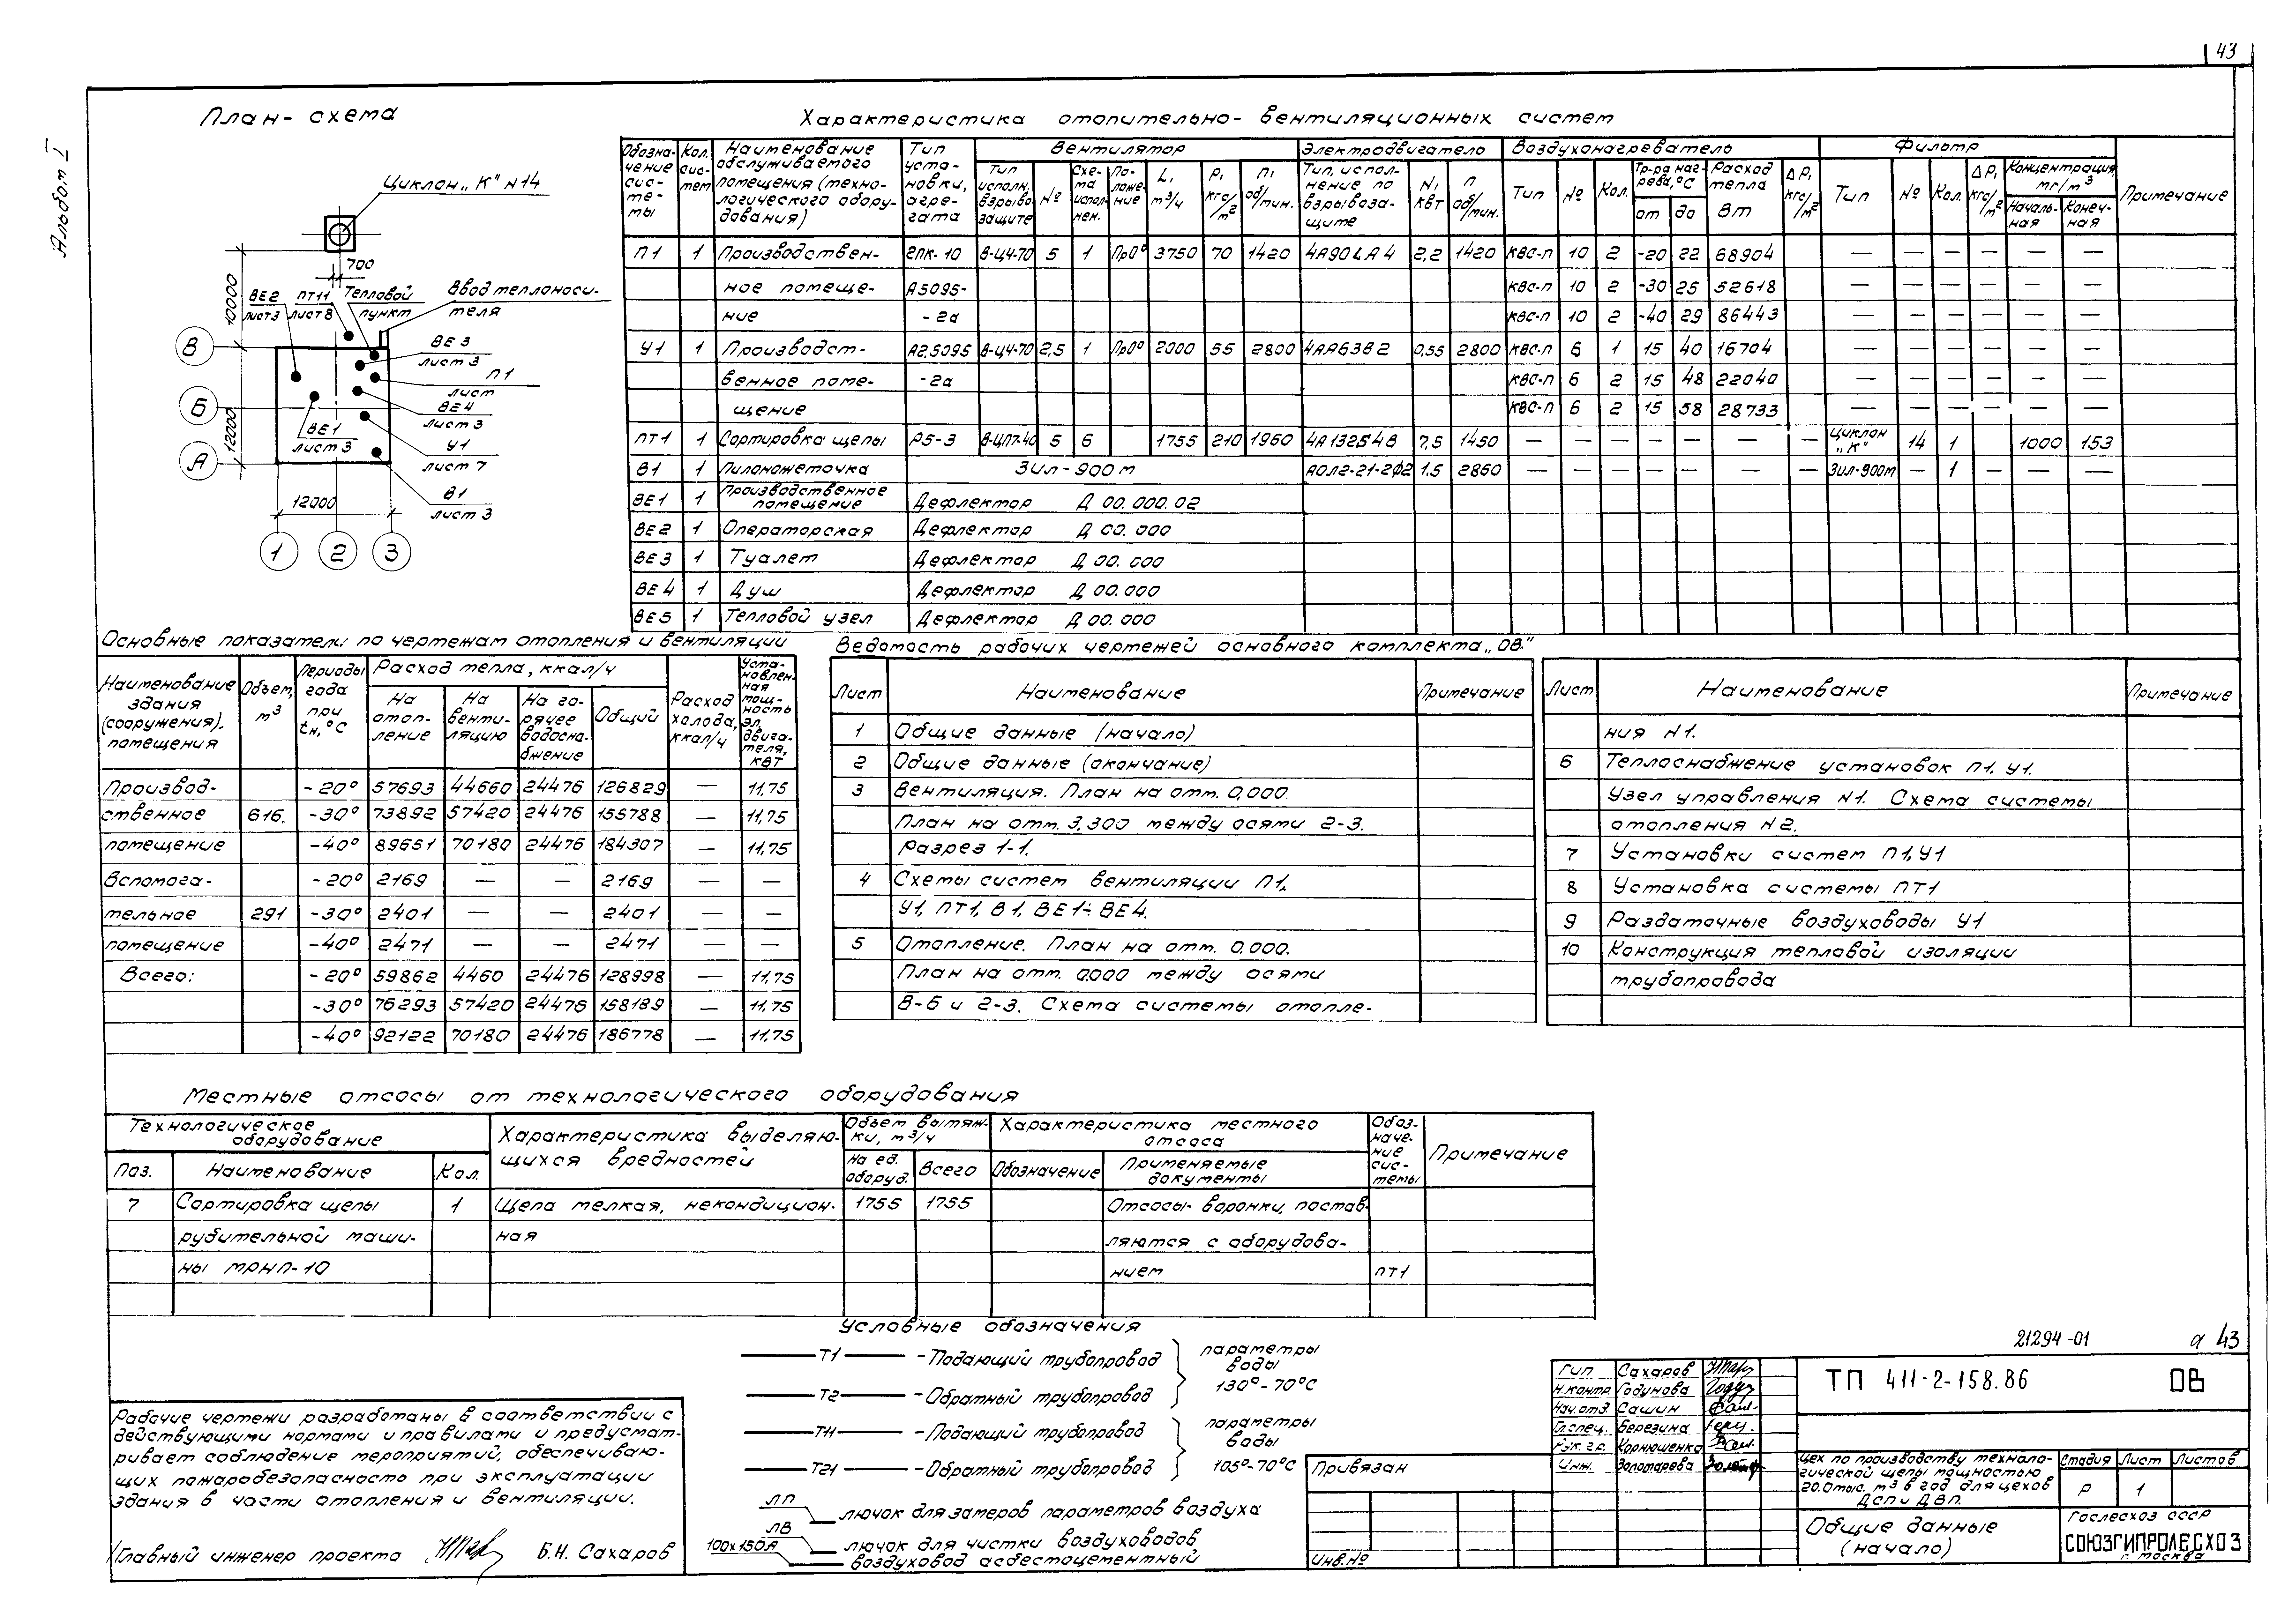 43
Альбом I
План-схема
Циклон „К" №14
700
ВЕ2 ПТ11 Тепловой Ввод теплоноси-
лист3 лист8 пункт теля
10000
В
ВЕ3
лист 3
П1
лист
Б
ВЕ4
лист 3
12000
ВЕ1
лист 3
У1
лист 7
А
В1
лист 3
12000
1 2 3
Характеристика отопительно-вентиляционных систем
Обозна-чение сис-те-мы | Кол. сис-тем | Наименование обслуживаемого помещения (техно-логического обору-дования) | Тип уста-новки, агре-гата | Вентилятор | Электродвигатель | Воздухонагреватель | Фильтр | Примечание
Тип исполн. взрыво защите | № | Схе-ма испол-нен. | По-ложе-ние | L, м³/ч | Р, кгс/м² | п, об/мин. | Тип, испол-нение по взрывоза-щите | N, квт | п об/мин. | Тип | № | Кол. | Тр-ра наг-рева, °С от до | Расход тепла Вт | ΔР, кгс/м² | Тип | № | Кол. | ΔР, кгс/м² | Концентрация мг/м³ Началь-ная Конеч-ная
П1 1 Производствен- 2ПК-10 В-Ц4-70 5 1 Пр0° 3750 70 1420 4А90LА4 2,2 1420 КВС-П 10 2 -20 22 68904 — — — — — —
ное помеще- А5095- КВС-П 10 2 -30 25 52618 — — — — — —
ние -2а КВС-П 10 2 -40 29 86443 — — — — — —
У1 1 Производст- А2,5095 В-Ц4-70 2,5 1 Пр0° 2000 55 2800 4АА63В2 0,55 2800 КВС-П 6 1 15 40 16704 — — — — — —
венное поме- -2а КВС-П 6 2 15 48 22040 — — — — — —
щение КВС-П 6 2 15 58 28733 — — — — — —
ПТ1 1 Сортировка щепы Р5-3 В-ЦП7-40 5 6 1755 210 1960 4А132S4В 7,5 1450 — — — — — — — Циклон „К" 14 1 1000 153
В1 1 Пилоножеточка Зил-900м АОЛ2-21-2ф2 1.5 2860 — — — — — — — Зил-900м — 1 — — —
ВЕ1 1 Производственное помещение Дефлектор Д 00.000.02
ВЕ2 1 Операторская Дефлектор Д 00.000
ВЕ3 1 Туалет Дефлектор Д 00.000
ВЕ4 1 Душ Дефлектор Д 00.000
ВЕ5 1 Тепловой узел Дефлектор Д 00.000
Основные показатели по чертежам отопления и вентиляции
Наименование здания (сооружения), помещения | Объем, м³ | Периоды года при tн,°С | Расход тепла, ккал/ч | Расход холода, ккал/ч | Уста-новлен-ная мощ-ность эл. двига-теля, квт
На отоп-ление | На венти-ляцию | На го-рячее водосна-бжение | Общий
Производ- -20° 57693 44660 24476 126829 — 11,75
ственное 616. -30° 73892 57420 24476 155788 — 11,75
помещение -40° 89651 70180 24476 184307 — 11,75
Вспомога- -20° 2169 — — 2169 — —
тельное 291 -30° 2401 — — 2401 — —
помещение -40° 2471 — — 2471 — —
Всего: -20° 59862 4460 24476 128998 — 11,75
-30° 76293 57420 24476 158189 — 11,75
-40° 92122 70180 24476 186778 — 11,75
Ведомость рабочих чертежей основного комплекта „ОВ"
Лист Наименование Примечание
1 Общие данные (начало)
2 Общие данные (окончание)
3 Вентиляция. План на отм. 0,000.
План на отм. 3,300 между осями 2-3.
Разрез 1-1.
4 Схемы систем вентиляции П1,
У1, ПТ1, В1, ВЕ1÷ВЕ4.
5 Отопление. План на отм. 0,000.
План на отм. 0,000 между осями
В-Б и 2-3. Схема системы отопле-
Лист Наименование Примечание
ния №1.
6 Теплоснабжение установок П1, У1.
Узел управления №1. Схема системы
отопления №2.
7 Установки систем П1, У1
8 Установка системы ПТ1
9 Раздаточные воздуховоды У1
10 Конструкция тепловой изоляции
трубопровода
Местные отсосы от технологического оборудования
Технологическое оборудование | Характеристика выделяю-щихся вредностей | Объем вытяж-ки, м³/ч | Характеристика местного отсоса | Обоз-наче-ние сис-темы | Примечание
Поз. Наименование Кол. На ед. оборуд. Всего Обозначение Применяемые документы
7 Сортировка щепы 1 Щепа мелкая, некондицион- 1755 1755 Отсосы-воронки, постав-
рубительной маши- ная ляются с оборудова-
ны МРНП-10 нием ПТ1
Условные обозначения
Т1 - Подающий трубопровод
Т2 - Обратный трубопровод
параметры воды 130°-70°С
Т11 - Подающий трубопровод
Т21 - Обратный трубопровод
параметры воды 105°-70°С
ЛП лючок для замеров параметров воздуха
ЛВ лючок для чистки воздуховодов
100х150А воздуховод асбестоцементный
Рабочие чертежи разработаны в соответствии с
действующими нормами и правилами и предусмат-
ривает соблюдение мероприятий, обеспечиваю-
щих пожаробезопасность при эксплуатации
здания в части отопления и вентиляции.
Главный инженер проекта Б.Н. Сахаров
Привязан
Инв.№
21294-01 43
Гип Сахаров
Н.контр. Годунова
Нач.отд. Сашин
Гл.спец. Березина
Рук. гр. Корнюшенко
Инж. Золотарева
ТП 411-2-158.86 ОВ
Цех по производству техноло-
гической щепы мощностью
20.0тыс. м³ в год для цехов
ДСП и ДВП.
Стадия Лист Листов
Р 1
Общие данные
(начало)
Гослесхоз СССР
СОЮЗГИПРОЛЕСХОЗ
г. Москва